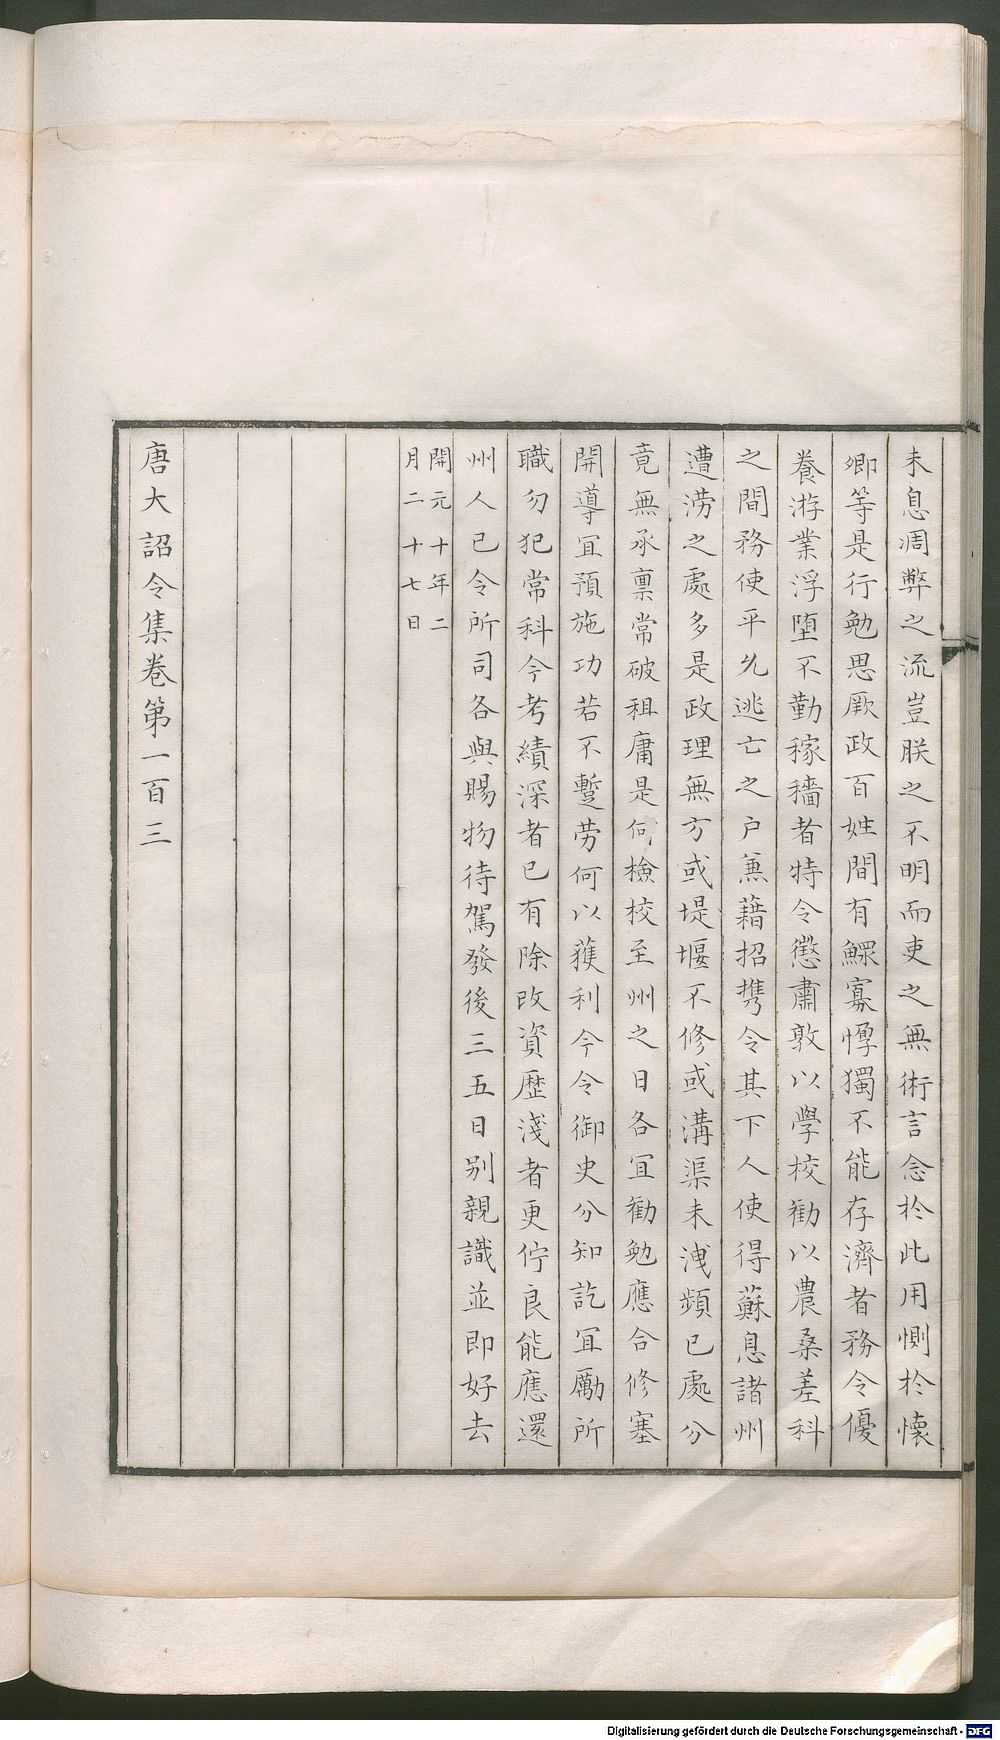 未息凋弊之流豈朕之不明而吏之無術言念於此用惻於懷
卿等是行勉思厥政百姓間有鰥寡惸獨不能存濟者務令優
養游業浮墮不勤稼穡者特令懲肅敦以學校勸以農桑差科
之間務使平允逃亡之戶兼藉招携令其下人使得蘇息諸州
遭澇之處多是政理無方或堤堰不修或溝渠未洩頻已處分
竟無承稟常破租庸是何檢校至州之日各宜勸勉應合修塞
開導宜預施功若不蹔劳何以獲利今令御史分知訖宜勵所
職勿犯常科今考績深者已有除改資歷淺者更佇良能應還
州人已令所司各與賜物待駕發後三五日別親識並即好去
開元十年二
月二十七日
唐大詔令集卷第一百三
Digitalisierung gefördert durch die Deutsche Forschungsgemeinschaft - DFG